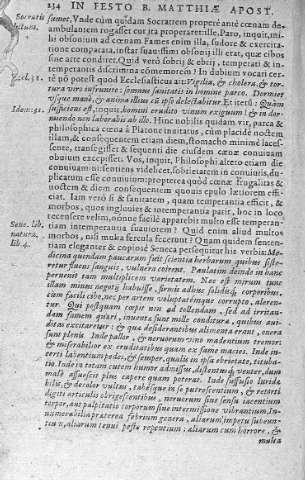 234 IN FESTO B. MATTHIÆ APOST.
Socratis
sumet, Vnde cùm quidam Socratem properè ante cœnam de-
ambulantem rogasset cur ita properaret: ille, Paro, inquit, mi-
hi obsonium ad cœnam. Fames enim illa, sudore & exercita-
tione comparata, instar suauissimi obsonij illi erat, quæ cibos
sine arte condiret. Quid verò sobrij & ebrij, temperati & in-
temperantis discrimina commemorem? In dubium vocari cer-
tè nō potest quod Ecclesiasticus ait: Vigilia, & cholera, & tor-
Eccl. 31.
tura viro infrunito: somnus sanitatis in homine parco. Dormiet
vsque mane, & anima illius cū ipso delectabitur. Et iterū: Quàm
Idem. 31.
sufficiens est, inquit, homini erudito vinum exiguum: & in dor-
miendo non laborabis ab illo. Hinc nobilis quidam vir, parca &
philosophica cœna à Platone inuitatus, cùm placidè noctem
illam, & consequentem etiam diem, stomacho minimè laces-
sente, transegisset, & sequenti die eiusdem cœnæ conuiuam
obuium excepisset: Vos, inquit, Philosophi altero etiam die
suauiter
plicatam esse conuiuium: propterea quòd cœnæ frugalitas &
noctem & diem consequentem quouis epulo lætiorem effi-
ciat. Iam verò si & sanitatem, quam temperantia efficit, &
morbos, quos ingluuies & intemperantia parit, hoc in loco
recensere velim, nonne facilè apparebit multò esse temperan-
tiam intemperantia suauiorem? Quid enim aliud multos
Sene. lib.
morbos, nisi multa fercula fecerunt? Quam quidem senten-
tiam eleganter & copiosè Seneca persequitur his verbis: Me-
dicina quondam paucarum fuit scientia herbarum quibus siste-
retur fluens sanguis, vulnera coirent. Paulatim deinde in hanc
peruenit tam multiplicem varietatem. Nec est mirum tunc
illam minus negotij habuisse, firmis adhuc solidisq́; corporibus,
& facili cibo, nec per artem voluptatémque corrupto,
Qui postquam cœpit non ad tollendam, sed ad irritan-
dam famem quæri, & inuentæ sunt mille condituræ, quibus aui-
ditas excitaretur: & quæ desiderantibus alimenta erant, onera
sunt plenis. Inde pallor, & neruorum vino madentium tremor:
& miserabilior ex cruditatibus quàm ex fame macies. Inde in-
certi labentium pedes, & semper, qualis in ipsa ebrietate, tituba-
tio. Inde in totam cutem humor admissus, distentusq́; venter, dum
malè assuescit plus capere quàm poterat. Inde suffusio luridæ
bilis, & decolor vultus, tabesque in se putrescentium, & retorti
digiti articulis obrigescentibus, neruorum sine sensu iacentium
torpor, aut palpitatio corporum sine intermissione vibrantium.
Innumerabilia præterea febrium genera, aliarum impetu sæuien-
tium, aliarum tenui peste repentium: aliarum cum horrore, &
multa